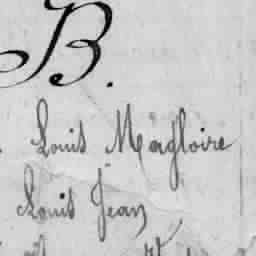 B.
Louis Magloire
Louis Jean